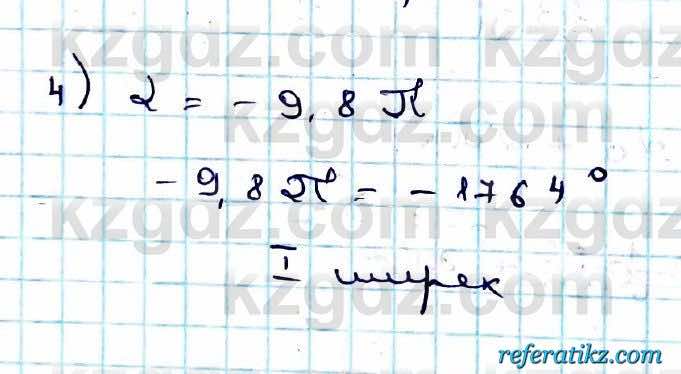 4) α = - 9,8 π
- 9,8 π = - 1764°
I ширек
kzgdz.com kzgdz.com
kzgdz.com kzgdz.com
kzgdz.com kzgdz.com
referatikz.com